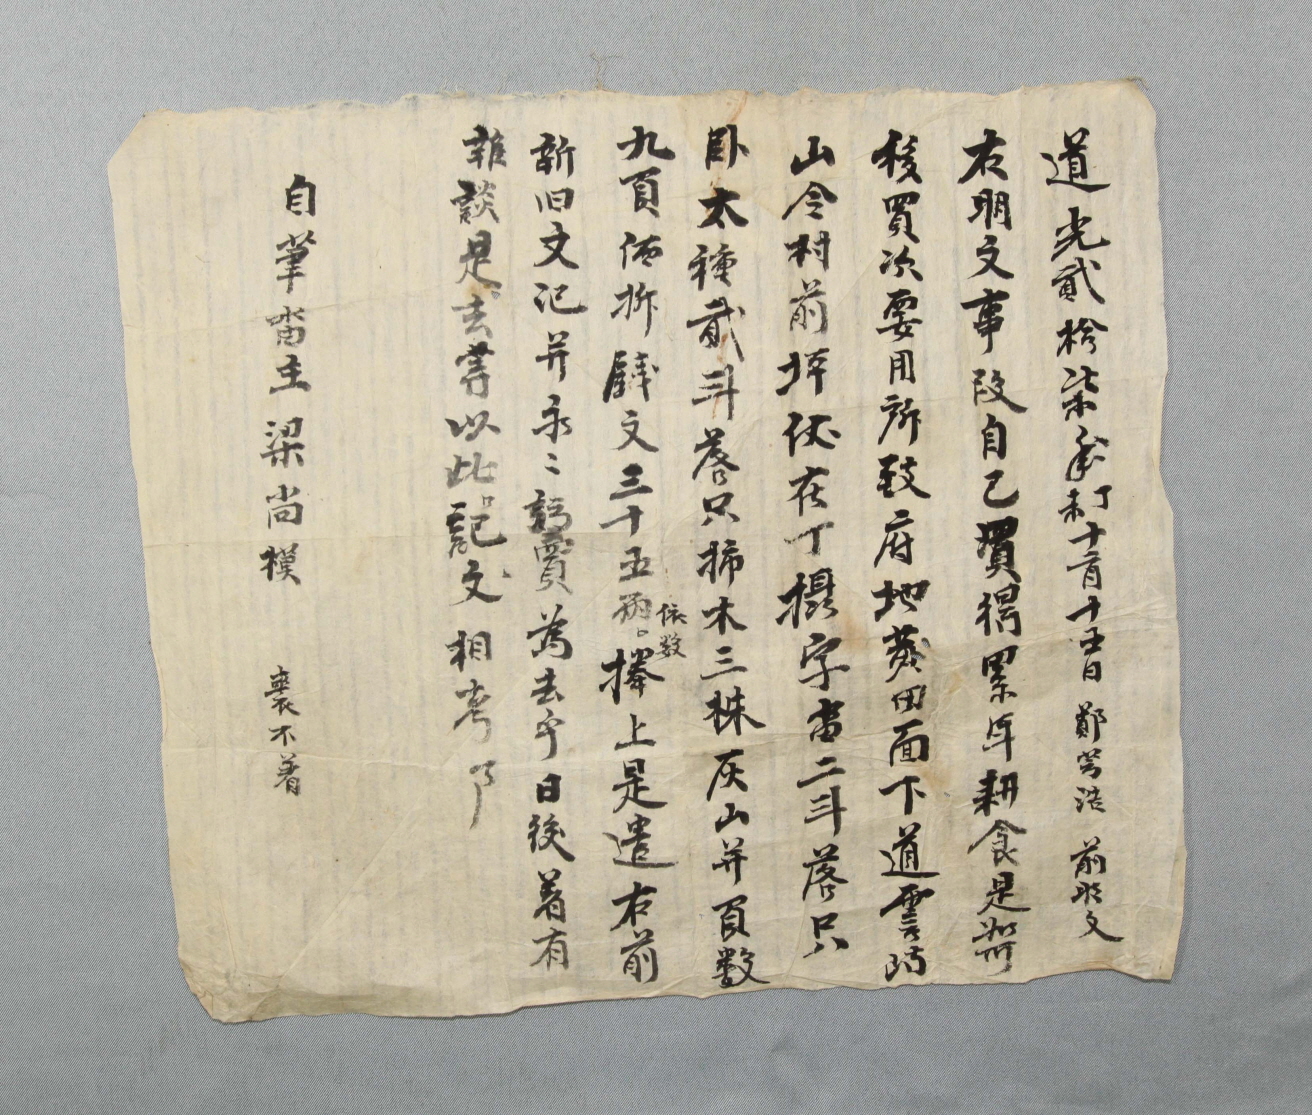 道光貳拾柒年丁未十一月十五日 鄭 浩 前明文
右明文事段自己買得累年耕食是如可
移買次要用所致府地 田面下道雲峙
山令村前坪伏在丁攝字畓二斗落只
卧太種貳斗落只柿木三株灰山幷頁數
九頁価折錢文三十五兩依數捧上是遣右前
新旧文記幷永〻放賣爲去乎日後若有
雜談是去等以此記文相考事
自筆畓主梁尚模 喪不着